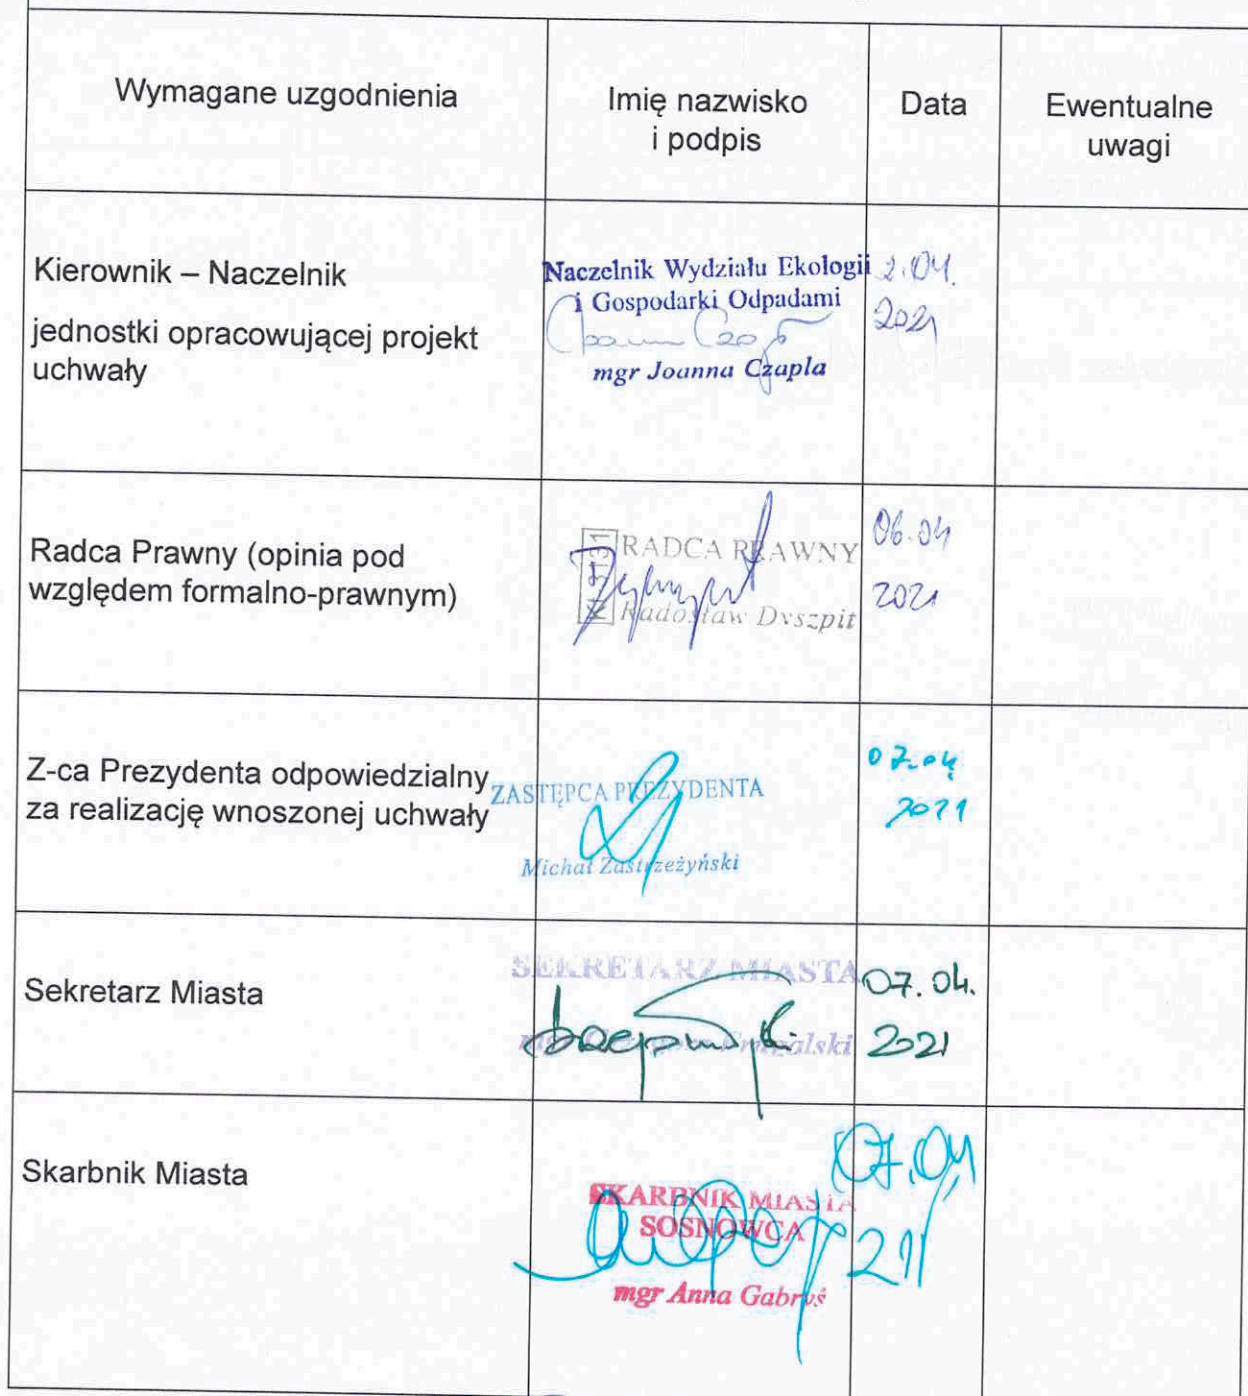 Wymagane uzgodnienia
Imię nazwisko
i podpis
Data
Ewentualne
uwagi
Kierownik – Naczelnik
jednostki opracowującej projekt
uchwały
Naczelnik Wydziału Ekologii
i Gospodarki Odpadami
mgr Joanna Czapla
2.04.
2021
Radca Prawny (opinia pod
względem formalno-prawnym)
RADCA PRAWNY
Radosław Dyszpit
06.04
2021
Z-ca Prezydenta odpowiedzialny
za realizację wnoszonej uchwały
ZASTĘPCA PREZYDENTA
Michał Zastrzeżyński
07.04
2021
Sekretarz Miasta
SEKRETARZ MIASTA
mgr
07.04.
2021
Skarbnik Miasta
SKARBNIK MIASTA
SOSNOWCA
mgr Anna Gabryś
07.04
21